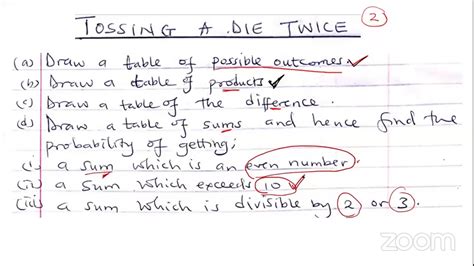 TOSSING A DIE TWICE
2
(a) Draw a table of possible outcomes
(b) Draw a table of products
(c) Draw a table of the difference.
(d) Draw a table of sums and hence find the
probability of getting;
(i) a sum which is an even number.
(ii) a sum which exceeds 10
(iii) a sum which is divisible by 2 or 3.
zoom